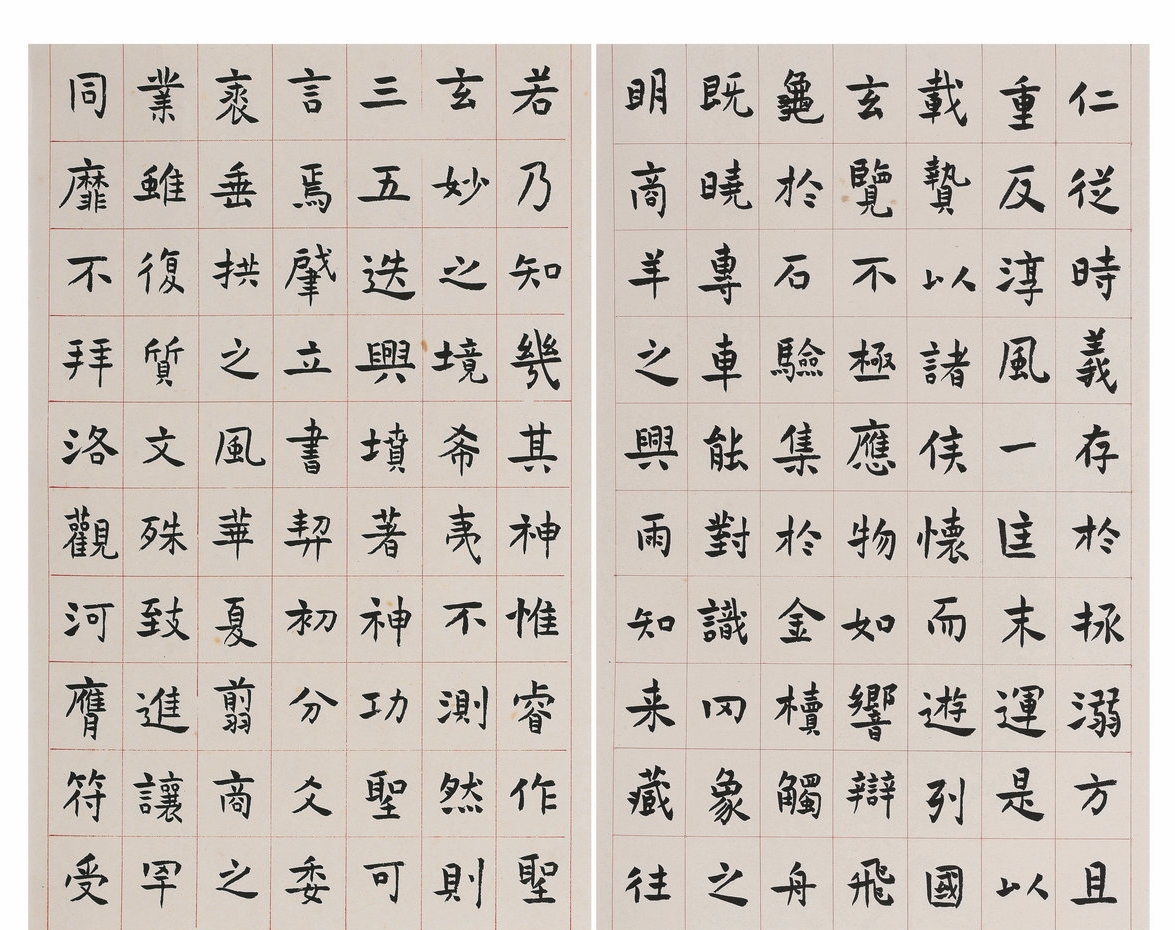 仁從時義存於拯溺方且
重反淳風一匡末運是以
載贄以諸侯懷而遊列國
玄覽不極應物如響辯飛
龜於石驗集於金櫝觸舟
既曉專車能對識罔象之
明商羊之興雨知来藏往
若乃知幾其神惟睿作聖
玄妙之境希夷不測然則
三五迭興墳著神功聖可
言焉肇立書契初分爻委
裘垂拱之風革夏翦商之
業雖復質文殊致進讓罕
同靡不拜洛觀河膺符受